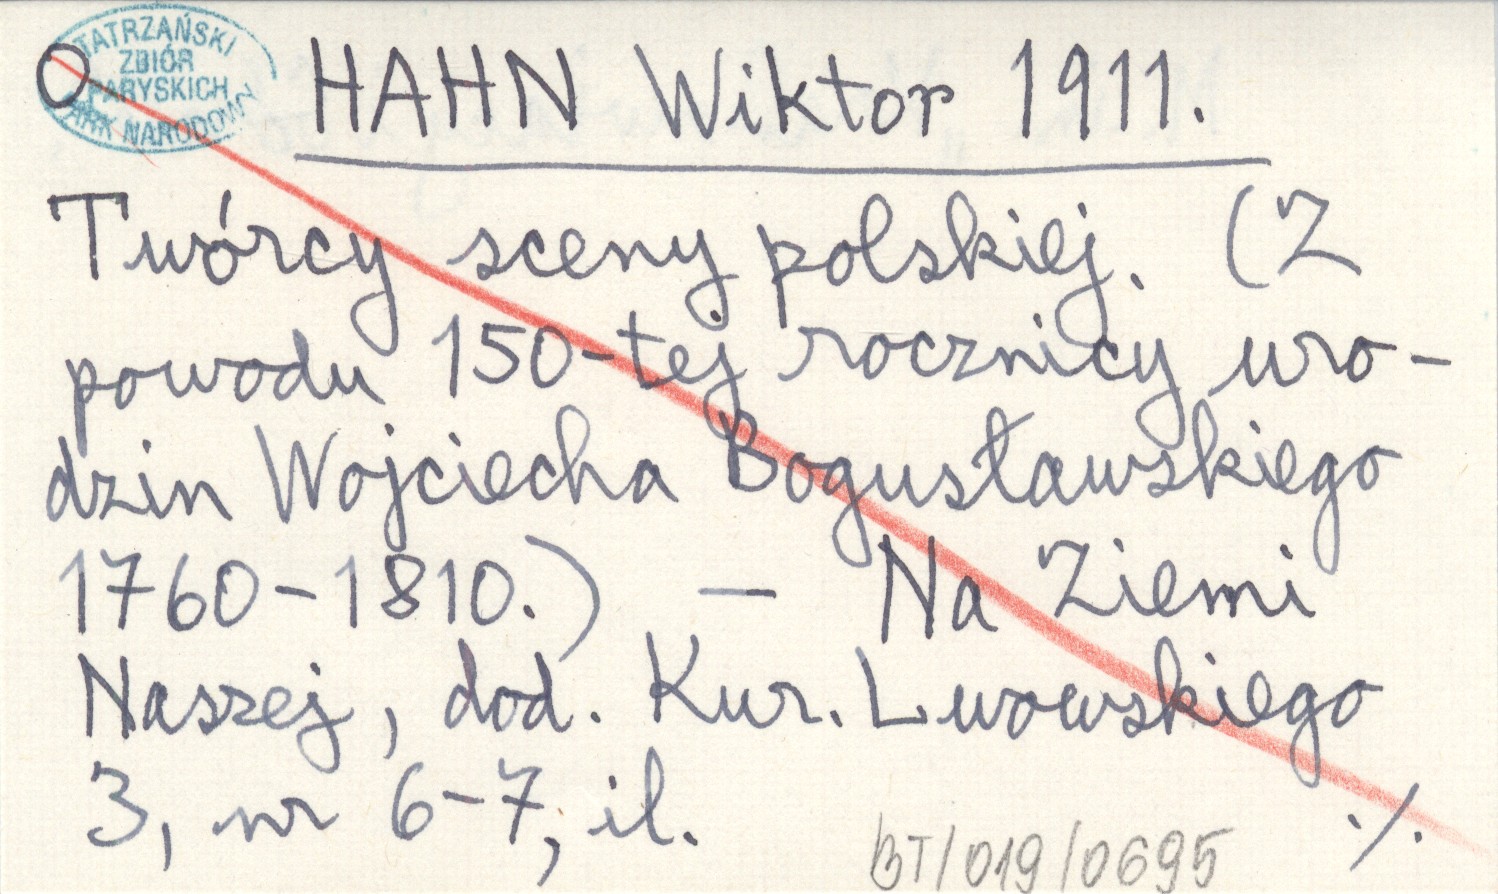 TATRZAŃSKI
ZBIÓR
PARYSKICH
PARK NARODOWY
O
HAHN Wiktor 1911.
Twórcy sceny polskiej. (Z
powodu 150-tej rocznicy uro-
dzin Wojciecha Bogusławskiego
1760-1810.) — Na Ziemi
Naszej, dod. Kur. Lwowskiego
3, nr 6-7, il.
./.
BT/019/0695